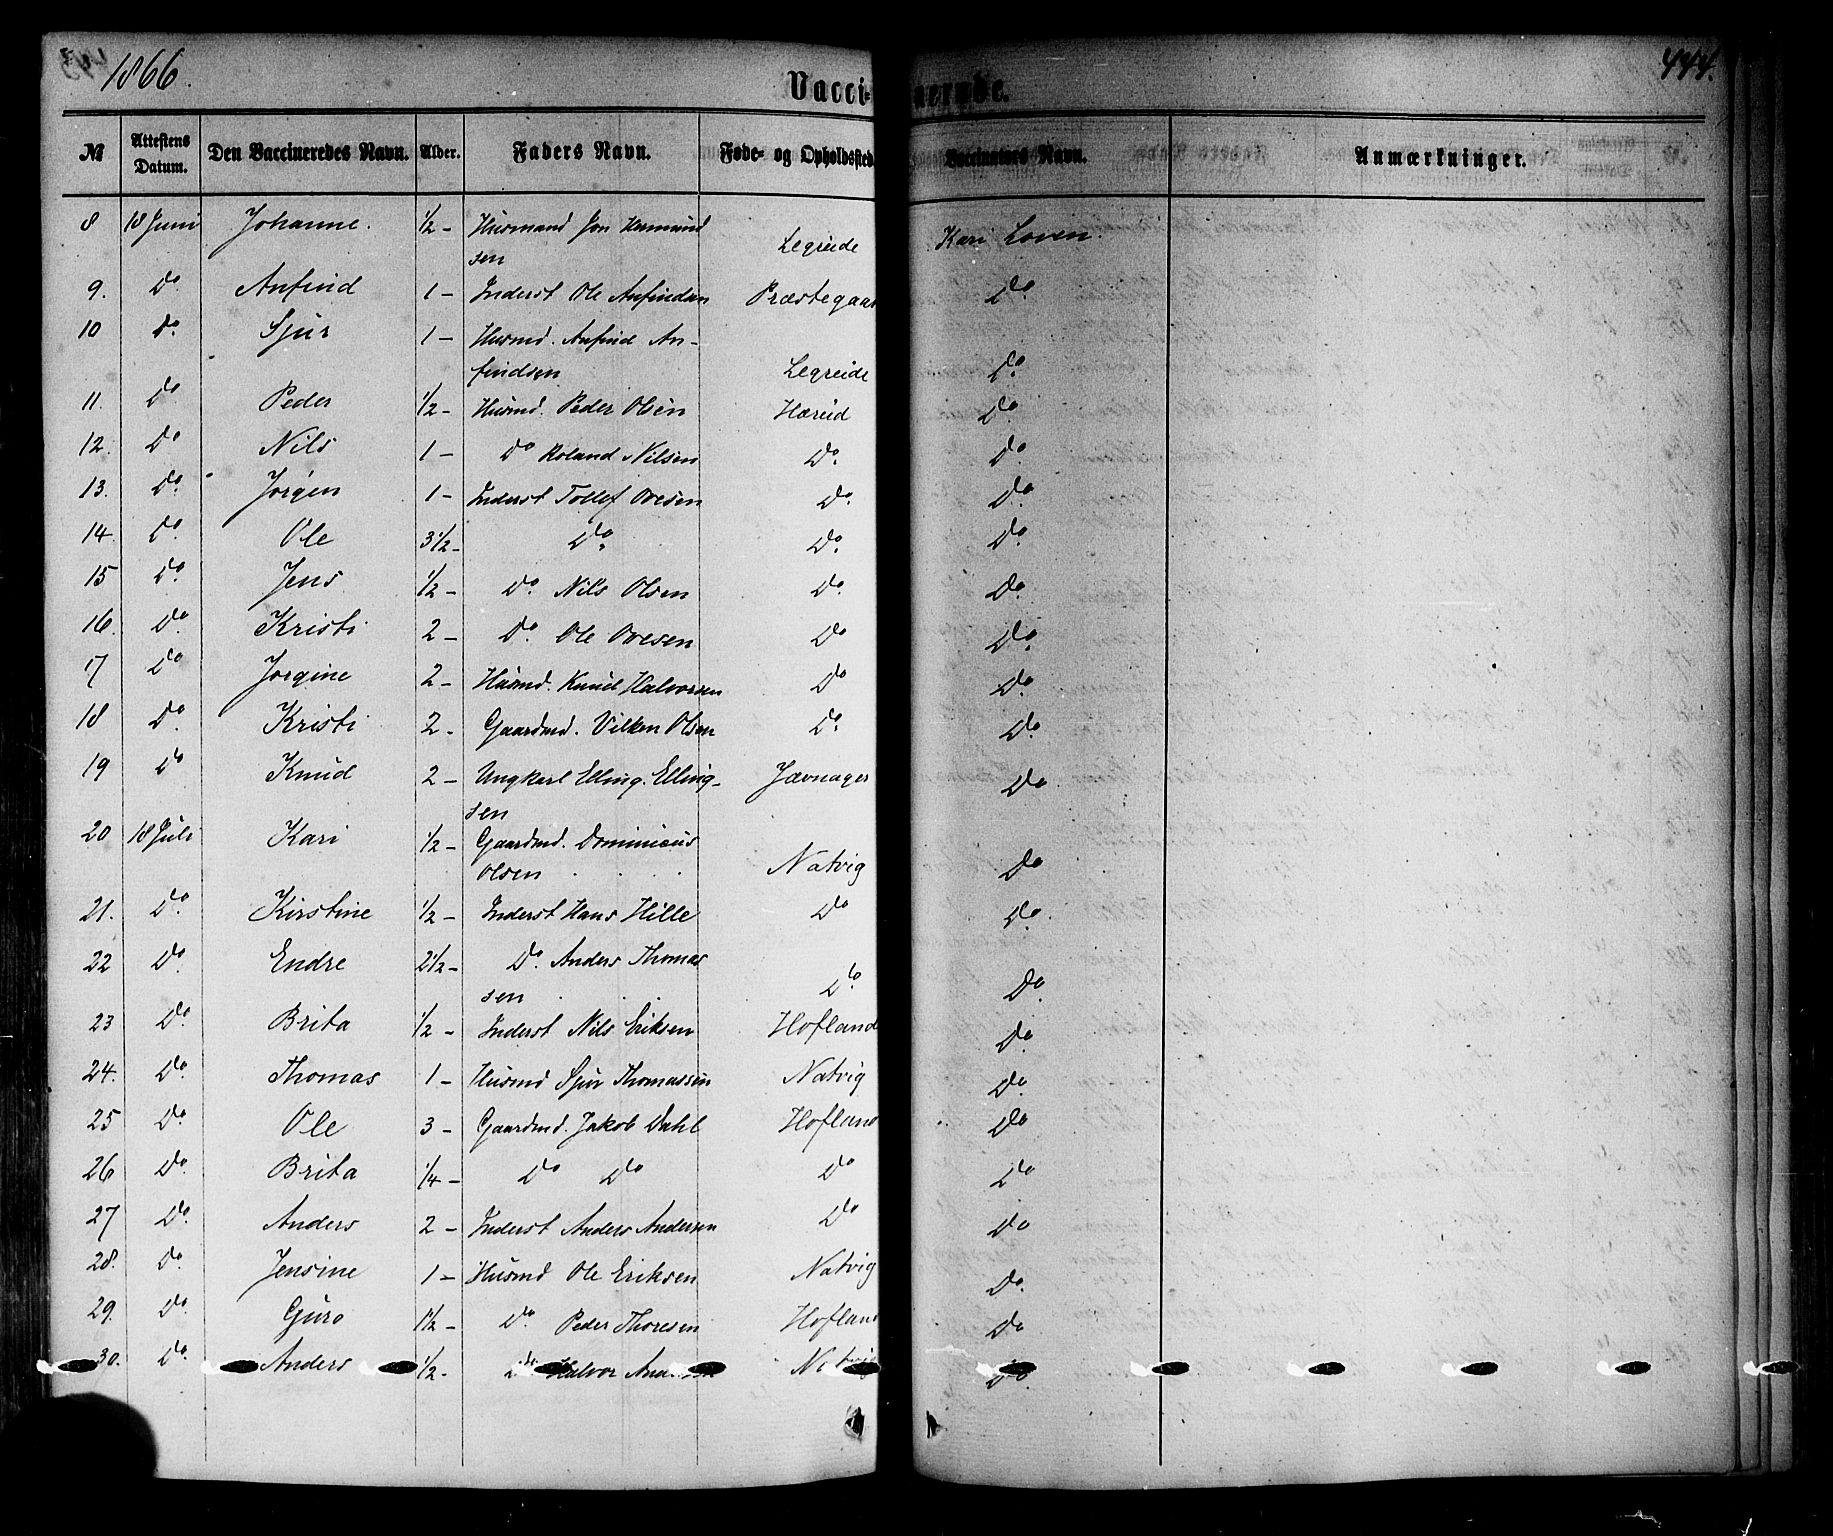 1866.
444.
Vacci-
nerede.
№ Attestens Datum. Den Vaccineredes Navn. Alder. Faders Navn. Føde- og Opholdssted Vaccinators Navn. Anmærkninger.
8 18 Juni Johanne. 1/2 - Husmand Jon Hermund
sen Legreide Kari Loven.
9. Do Anfind 1 - Inderst Ole Anfindsn Præstegaar Do
10 Do Sjur 1 - Husmd. Anfind An-
findsen Legreide Do
11. Do Peder 1/2 - Husmd. Peder Olsen Hæreid Do
12. Do Nils 1 - Do Roland Nilsen Do Do
13. Do Jørgen 1 - Inderst Tollef Ovesen Do Do
14. Do Ole 3 1/2 - Do Do Do
15 Do Jens 1/2 - Do Nils Olsen Do Do
16. Do Kristi 2 - Do Ole Ovesen Do Do
17 Do Jorgine 2 - Husmd. Knud Halvorsen Do Do
18 Do Kristi 2 - Gaardmd. Vilken Olsen Do Do
19 Do Knud 2 - Ungkarl Elling Elling-
sen Jævnager Do
20 18 Juli Kari 1/2 - Gaardmd. Dominicus
Olsen Natvig Do
21. Do Kirstine 1/2 - Inderst Hans Hille Do Do
22 Do Endre 2 1/2 - Do Anders Thomas
sen Do Do
23 Do Brita 1/2 - Inderst Nils Eriksen Hofland Do
24. Do Thomas 1 - Husmd Sjur Thomassen Natvig Do
25 Do Ole 3 - Gaardmd. Jakob Dahl Hofland Do
26 Do Brita 1/4 - Do Do Do Do
27 Do Anders 2 - Inderst Anders Andersen Do Do
28. Do Jensine 1 - Husmd Ole Eriksen Natvig Do
29. Do Guro 1 1/2 - Do Peder Thoresen Hofland Do
30. Do Anders 1/2 - Do Halvor Natvig Do